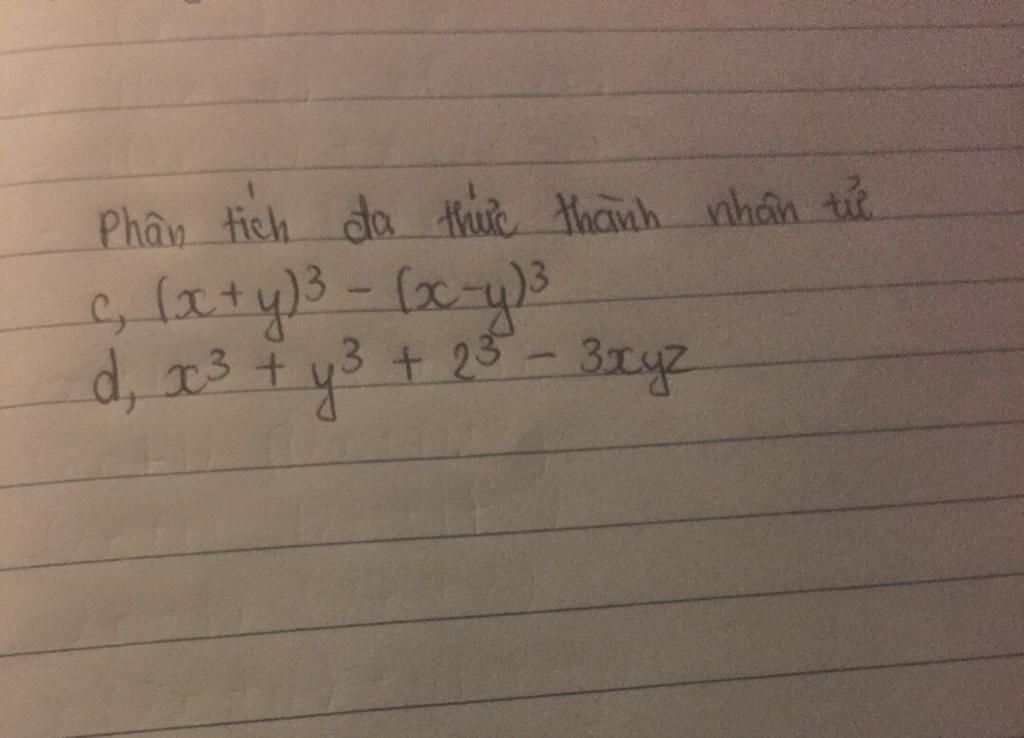 Phân tích đa thức thành nhân tử
c, (x+y)³ - (x-y)³
d, x³ + y³ + z³ - 3xyz